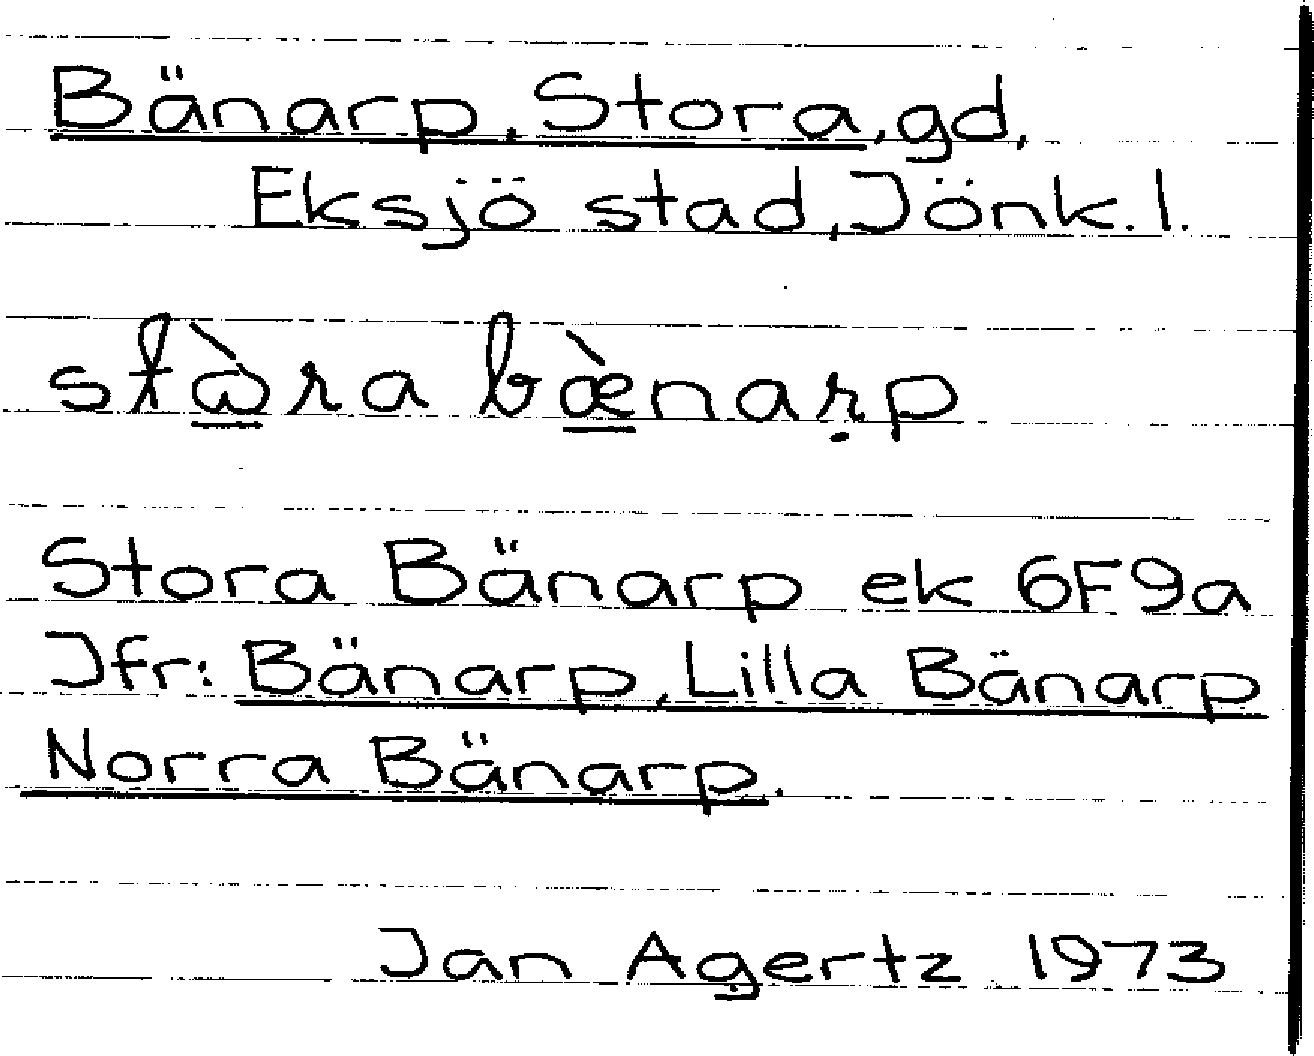 Bänarp, Stora, gd,
Eksjö stad, Jönk. l.
stàra bæ̀narp
Stora Bänarp ek 6F9a
Jfr: Bänarp, Lilla Bänarp
Norra Bänarp.
Jan Agertz 1973